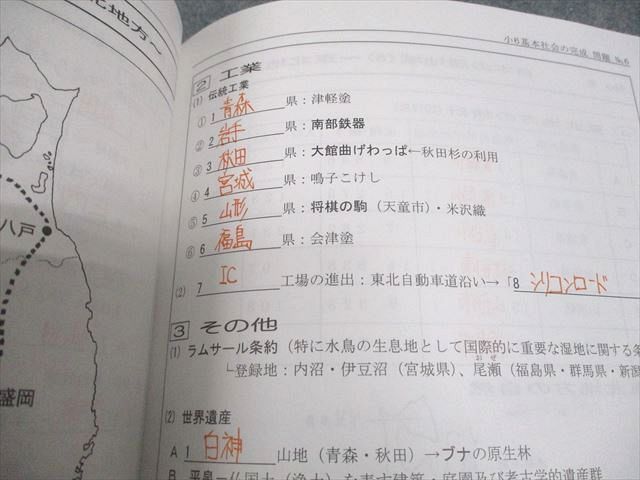 北地方～
八戸
盛岡
小6基本社会の完成 問題 No.6
2 工業
(1) 伝統工業
① 1 青森 県：津軽塗
② 2 岩手 県：南部鉄器
③ 3 秋田 県：大館曲げわっぱ←秋田杉の利用
④ 4 宮城 県：鳴子こけし
⑤ 5 山形 県：将棋の駒（天童市）・米沢織
⑥ 6 福島 県：会津塗
(2) 7 IC 工場の進出：東北自動車道沿い→「8 シリコンロード
3 その他
(1) ラムサール条約（特に水鳥の生息地として国際的に重要な湿地に関する条
おぜ
└登録地：内沼・伊豆沼（宮城県）、尾瀬（福島県・群馬県・新潟
(2) 世界遺産
A 1 白神 山地（青森・秋田）→ブナの原生林
B 平泉－仏国土（浄土）を表す建築・庭園及び考古学的遺産群